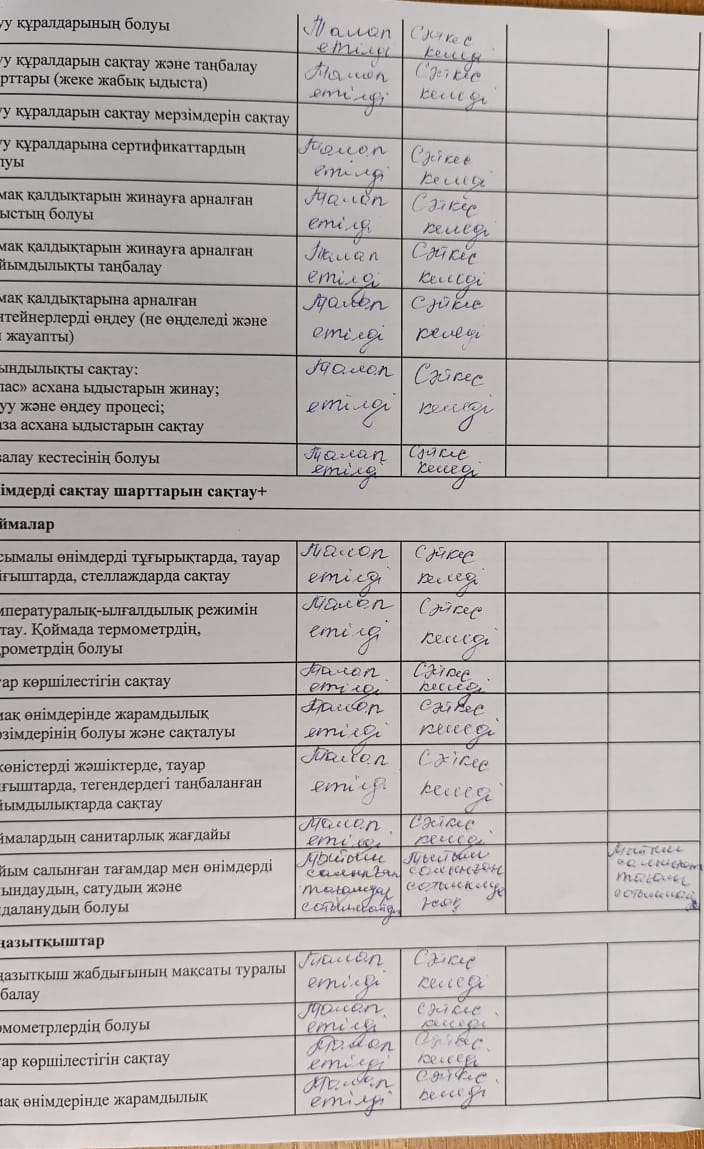 уу құралдарының болуы
Талап етілді
Сәйкес келеді
уу құралдарын сақтау және таңбалау
рттары (жеке жабық ыдыста)
Талап етілді
Сәйкес келеді
уу құралдарын сақтау мерзімдерін сақтау
уу құралдарына сертификаттардың
луы
Талап етілді
Сәйкес келеді
мақ қалдықтарын жинауға арналған
ыстың болуы
Талап етілді
Сәйкес келеді
мақ қалдықтарын жинауға арналған
йымдылықты таңбалау
Талап етілді
Сәйкес келеді
мақ қалдықтарына арналған
нтейнерлерді өңдеу (не өңделеді және
жауапты)
Талап етілді
Сәйкес келеді
ындылықты сақтау:
лас» асхана ыдыстарын жинау;
уу және өңдеу процесі;
за асхана ыдыстарын сақтау
Талап етілді
Сәйкес келеді
алау кестесінің болуы
Талап етілді
Сәйкес келеді
імдерді сақтау шарттарын сақтау+
ймалар
сымалы өнімдерді тұғырықтарда, тауар
йғыштарда, стеллаждарда сақтау
Талап етілді
Сәйкес келеді
мпературалық-ылғалдылық режимін
тау. Қоймада термометрдің,
рометрдің болуы
Талап етілді
Сәйкес келеді
ар көршілестігін сақтау
Талап етілді
Сәйкес келеді
мақ өнімдерінде жарамдылық
зімдерінің болуы және сақталуы
Талап етілді
Сәйкес келеді
көністерді жәшіктерде, тауар
ғыштарда, тегендердегі таңбаланған
йымдылықтарда сақтау
Талап етілді
Сәйкес келеді
ймалардың санитарлық жағдайы
Талап етілді
Сәйкес келеді
йым салынған тағамдар мен өнімдерді
ындаудың, сатудың және
даланудың болуы
Тыйым
салынған
тағамдар
сатылмайды
Тыйым
салынған
жоқ
Тыйым
тағамы
сатылмайды
ңазытқыштар
ңазытқыш жабдығының мақсаты туралы
балау
Талап етілді
Сәйкес келеді
рмометрлердің болуы
Талап етілді
Сәйкес келеді
ар көршілестігін сақтау
Талап етілді
Сәйкес келеді
мақ өнімдерінде жарамдылық
Талап етілді
Сәйкес келеді